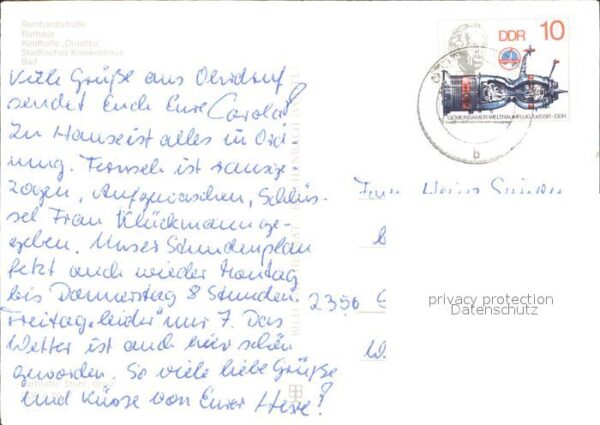 Reinhardtstraße
Rathaus
Kaufhalle „Drushba"
Städtisches Krankenhaus
Bad
Viele Grüße aus Ohrdruf
sendet Euch Eure Carola!
Zu Hause ist alles in Ord-
nung. Fernseh ist rausge-
zogen, Aufgewaschen, Schlüs-
sel Frau Klückmann ge-
geben. Unser Stundenplan
jetzt auch wieder Montag
bis Donnerstag 8 Stunden.
Freitag „leider" nur 7. Das
Wetter ist auch hier schön
geworden. So viele liebe Grüße
und Küsse von Eurer Hexe!
DDR 10
GEMEINSAMER WELTRAUMFLUG UdSSR-DDR
Fam. Heinz
2356
privacy protection
Datenschutz